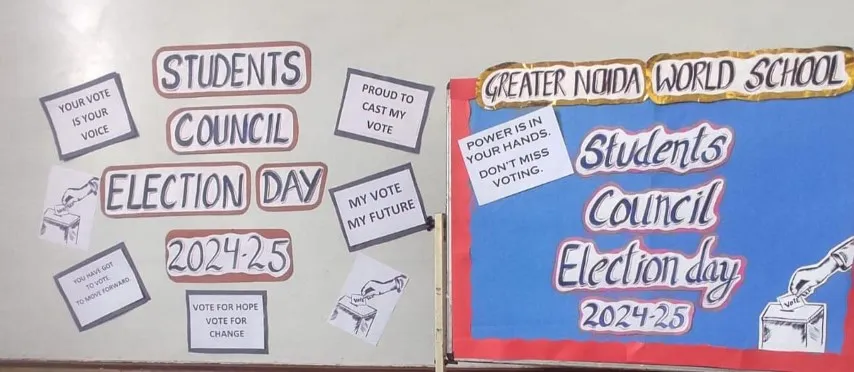 STUDENTS
COUNCIL
ELECTION DAY
2024-25
YOUR VOTE
IS YOUR
VOICE
PROUD TO
CAST MY
VOTE
MY VOTE
MY FUTURE
YOU HAVE GOT
TO VOTE
TO MOVE FORWARD.
VOTE FOR HOPE
VOTE FOR
CHANGE
VOTE
GREATER NOIDA WORLD SCHOOL
POWER IS IN
YOUR HANDS.
DON'T MISS
VOTING.
Students
Council
Election day
2024-25
VOTE